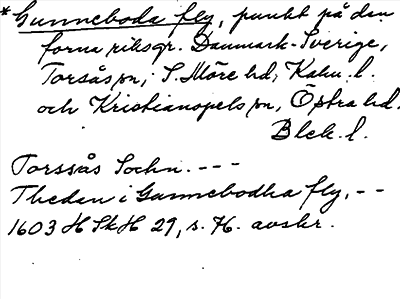 *Gunneboda fly, punkt på den
forna riksgr. Danmark-Sverige,
Torsås sn, S. Möre hd, Kalm. l.
och Kristianopels sn, Östra hd.
Blek. l.
Torssås Sochn. ---
Theden i Gunnebodha fly, --
1603 H Sk H 29, s. 76. avskr.